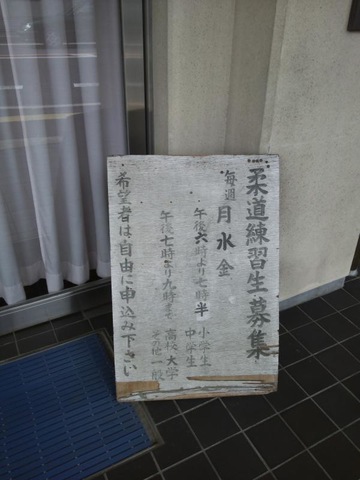 柔道練習生募集
毎週 月水金
午後六時より七時半 小学生 中学生
午後七時より九時まで 高校 大学 その他一般
希望者は自由に申込み下さい